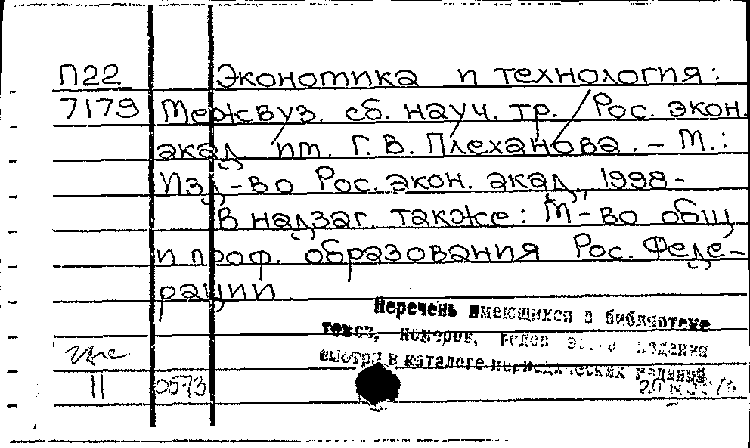 П22 Экономика и технология:
7179 Межвуз. сб. науч. тр. / Рос. экон.
акад. им. Г. В. Плеханова. - М.:
Изд-во Рос. экон. акад., 1998-
В надзаг. также: М-во общ.
и проф. образования Рос. Феде-
рации
Перечень имеющихся в библиотеке
томов, номеров, годов этого издания
смотри в каталоге периодических изданий
11 0573